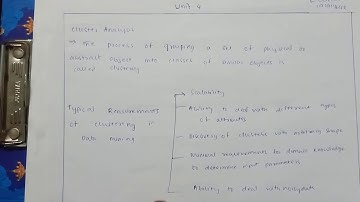 Unit 4
Cluster Analysis
The process of grouping a set of physical or
abstract objects into classes of similar objects is
called clustering
Scalability
Typical Requirements
of clustering in
Data mining
Ability to deal with different types
of attributes
Discovery of clusters with arbitrary shape
Minimal requirements for domain knowledge
to determine input parameters
Ability to deal with noisy data